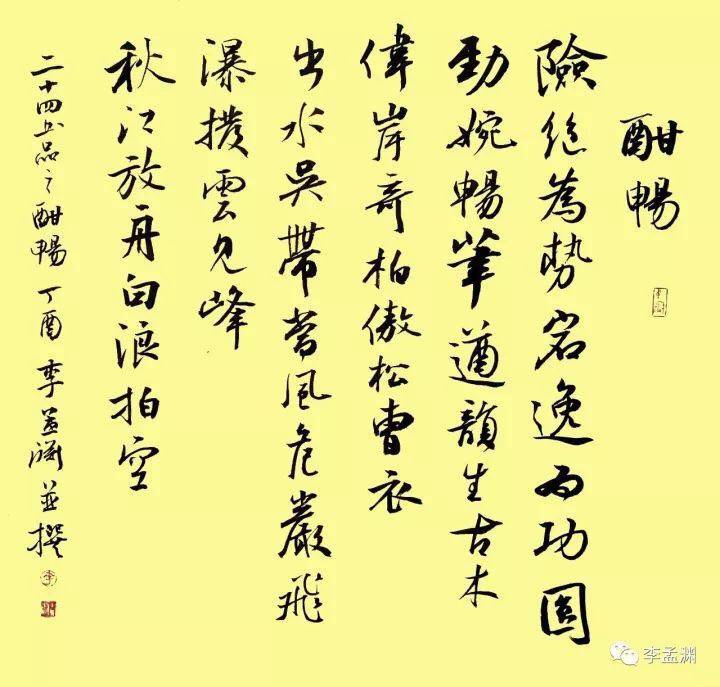 酣暢
險絕為勢宕逸为功圓
勁婉暢筆遒韻生古木
偉岸奇柏傲松曹衣
出水吳帶當風危巖飛
瀑撥雲見峰
秋江放舟白浪拍空
二十四书品之酣暢 丁酉 李孟淵並撰
李孟渊